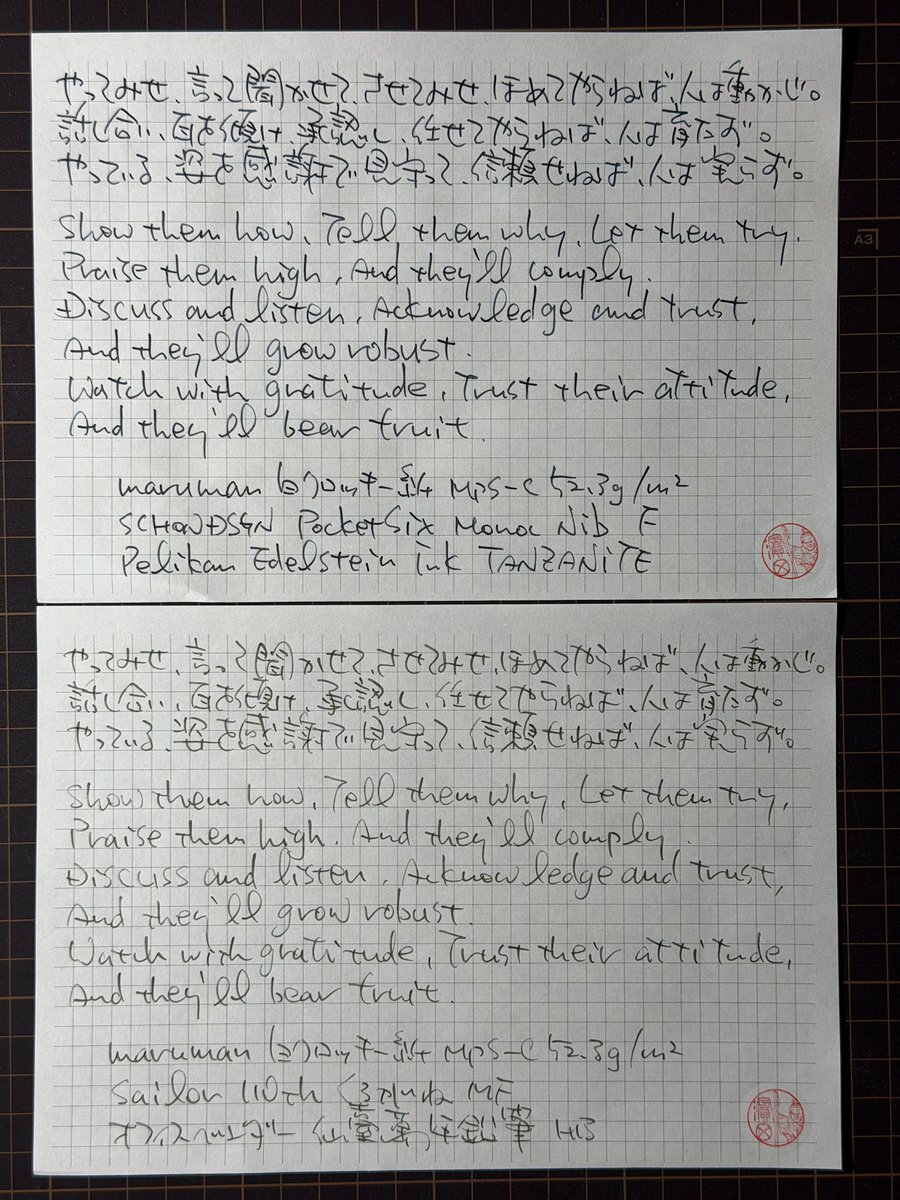 やってみせ、言って聞かせて、させてみせ、ほめてやらねば、人は動かじ。
話し合い、耳を傾け、承認し、任せてやらねば、人は育たず。
やっている、姿を感謝で見守って、信頼せねば、人は実らず。
Show them how, Tell them why, Let them try,
Praise them high, And they'll comply.
Discuss and listen, Acknowledge and trust,
And they'll grow robust.
Watch with gratitude, Trust their attitude,
And they'll bear fruit.
maruman MPS-C 52.3g/m²
SCHON DSGN Pocket Six Monoc Nib F
Pelikan Edelstein ink TANZANITE
A3
やってみせ、言って聞かせて、させてみせ、ほめてやらねば、人は動かじ。
話し合い、耳を傾け、承認し、任せてやらねば、人は育たず。
やっている、姿を感謝で見守って、信頼せねば、人は実らず。
Show them how, Tell them why, Let them try,
Praise them high, And they'll comply.
Discuss and listen, Acknowledge and trust,
And they'll grow robust.
Watch with gratitude, Trust their attitude,
And they'll bear fruit.
maruman MPS-C 52.3g/m²
Sailor 110th MF
HB